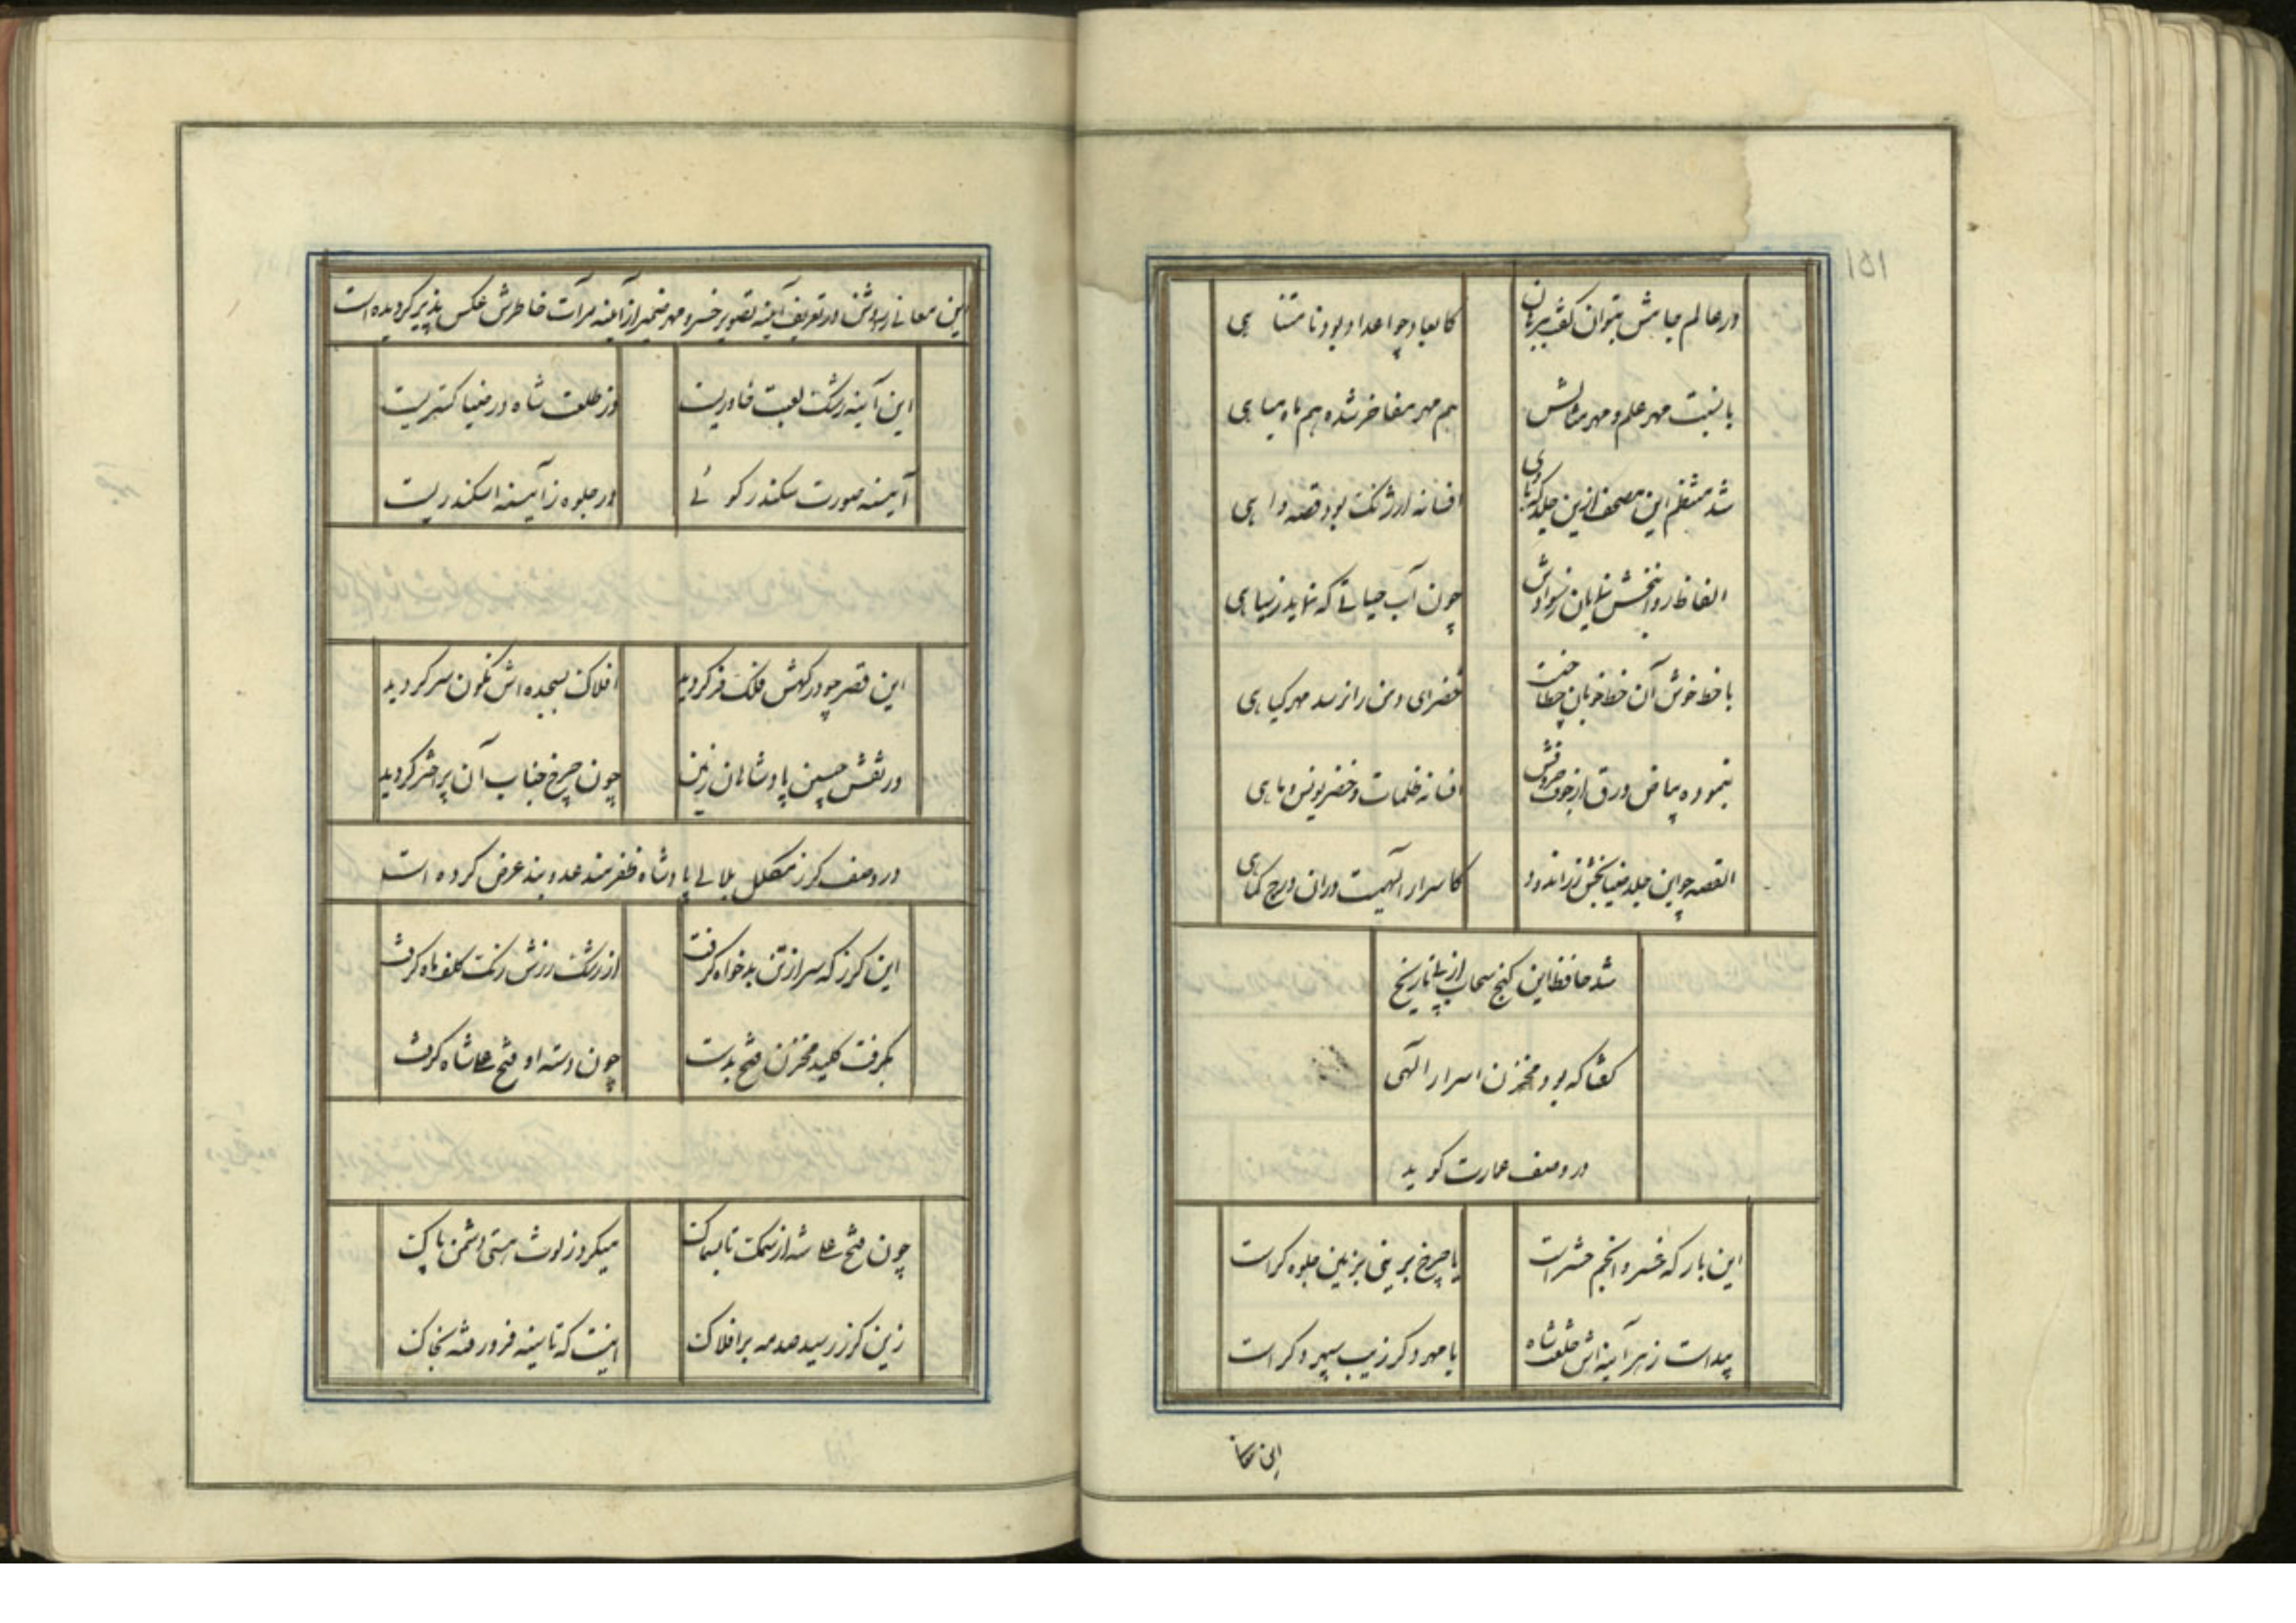 ۱۵۱
در عالم جاهش بتوان گفت ببرهان
کابعاد چو اعداد بود نامتناهی
با نسبت مهر علم و مهر مثالش
هم مهر مفاخر شده هم ماه مباهی
شد منتظم این مصحف ازین جلد که با وی
افسانه ارژنگ بود قصه واهی
الفاظ روانبخش نمایان ز سوادش
چون آب حیاتی که نماید ز سیاهی
با خط خوش آن خط خوبان
خضرای دمن را نرسد مهر گیاهی
بنموده بیاض ورق از جوف حروفش
افسانه ظلمات و خضر یونس و ماهی
القصه چو این جلد ضیابخش زراندود
کاسرار الهیت در آن درج کماهی
شد حافظ این گنج سحاب از پی تاریخ
گفتا که بود مخزن اسرار الهی
در وصف عمارت گوید
این بارگه خسرو انجم حشر است
یا چرخ برینی بزمین جلوه گر است
پیداست ز هر آینه اش طلعت شاه
یا مهر دگر زیب سپهر دگر است
این معانی روشن در تعریف آینه تصویر خسرو مهر ضمیر از آینه مرآت خاطرش عکس پذیر گردیده است
این آینه رشک لعبت خاوریست
وز طلعت شاه در ضیا گستریست
آیینه صورت سکندر گوئی
در جلوه ز آیینه اسکندریست
این قصر چو درگهش فلک فر گردید
افلاک بسجده اش نگون سر گردید
در نقش جبین پادشاهان زمین
چون چرخ جناب آن پر اختر گردید
در وصف گرز مکلل بلالی پادشاه ظفرمند عدو بند عرض کرده است
این گرز که سر از تن بدخواه گرفت
از رشک زرش رنگ کلف ماه گرفت
بگرفت کلید مخزن فتح بدست
چون دسته او فتحعلی شاه گرفت
چون فتحعلی شه از سمک تا بسماک
میکرد ز لوث هستی دشمن پاک
زین گرز رسید صدمه بر افلاک
اینست که تا سینه فرو رفته بخاک